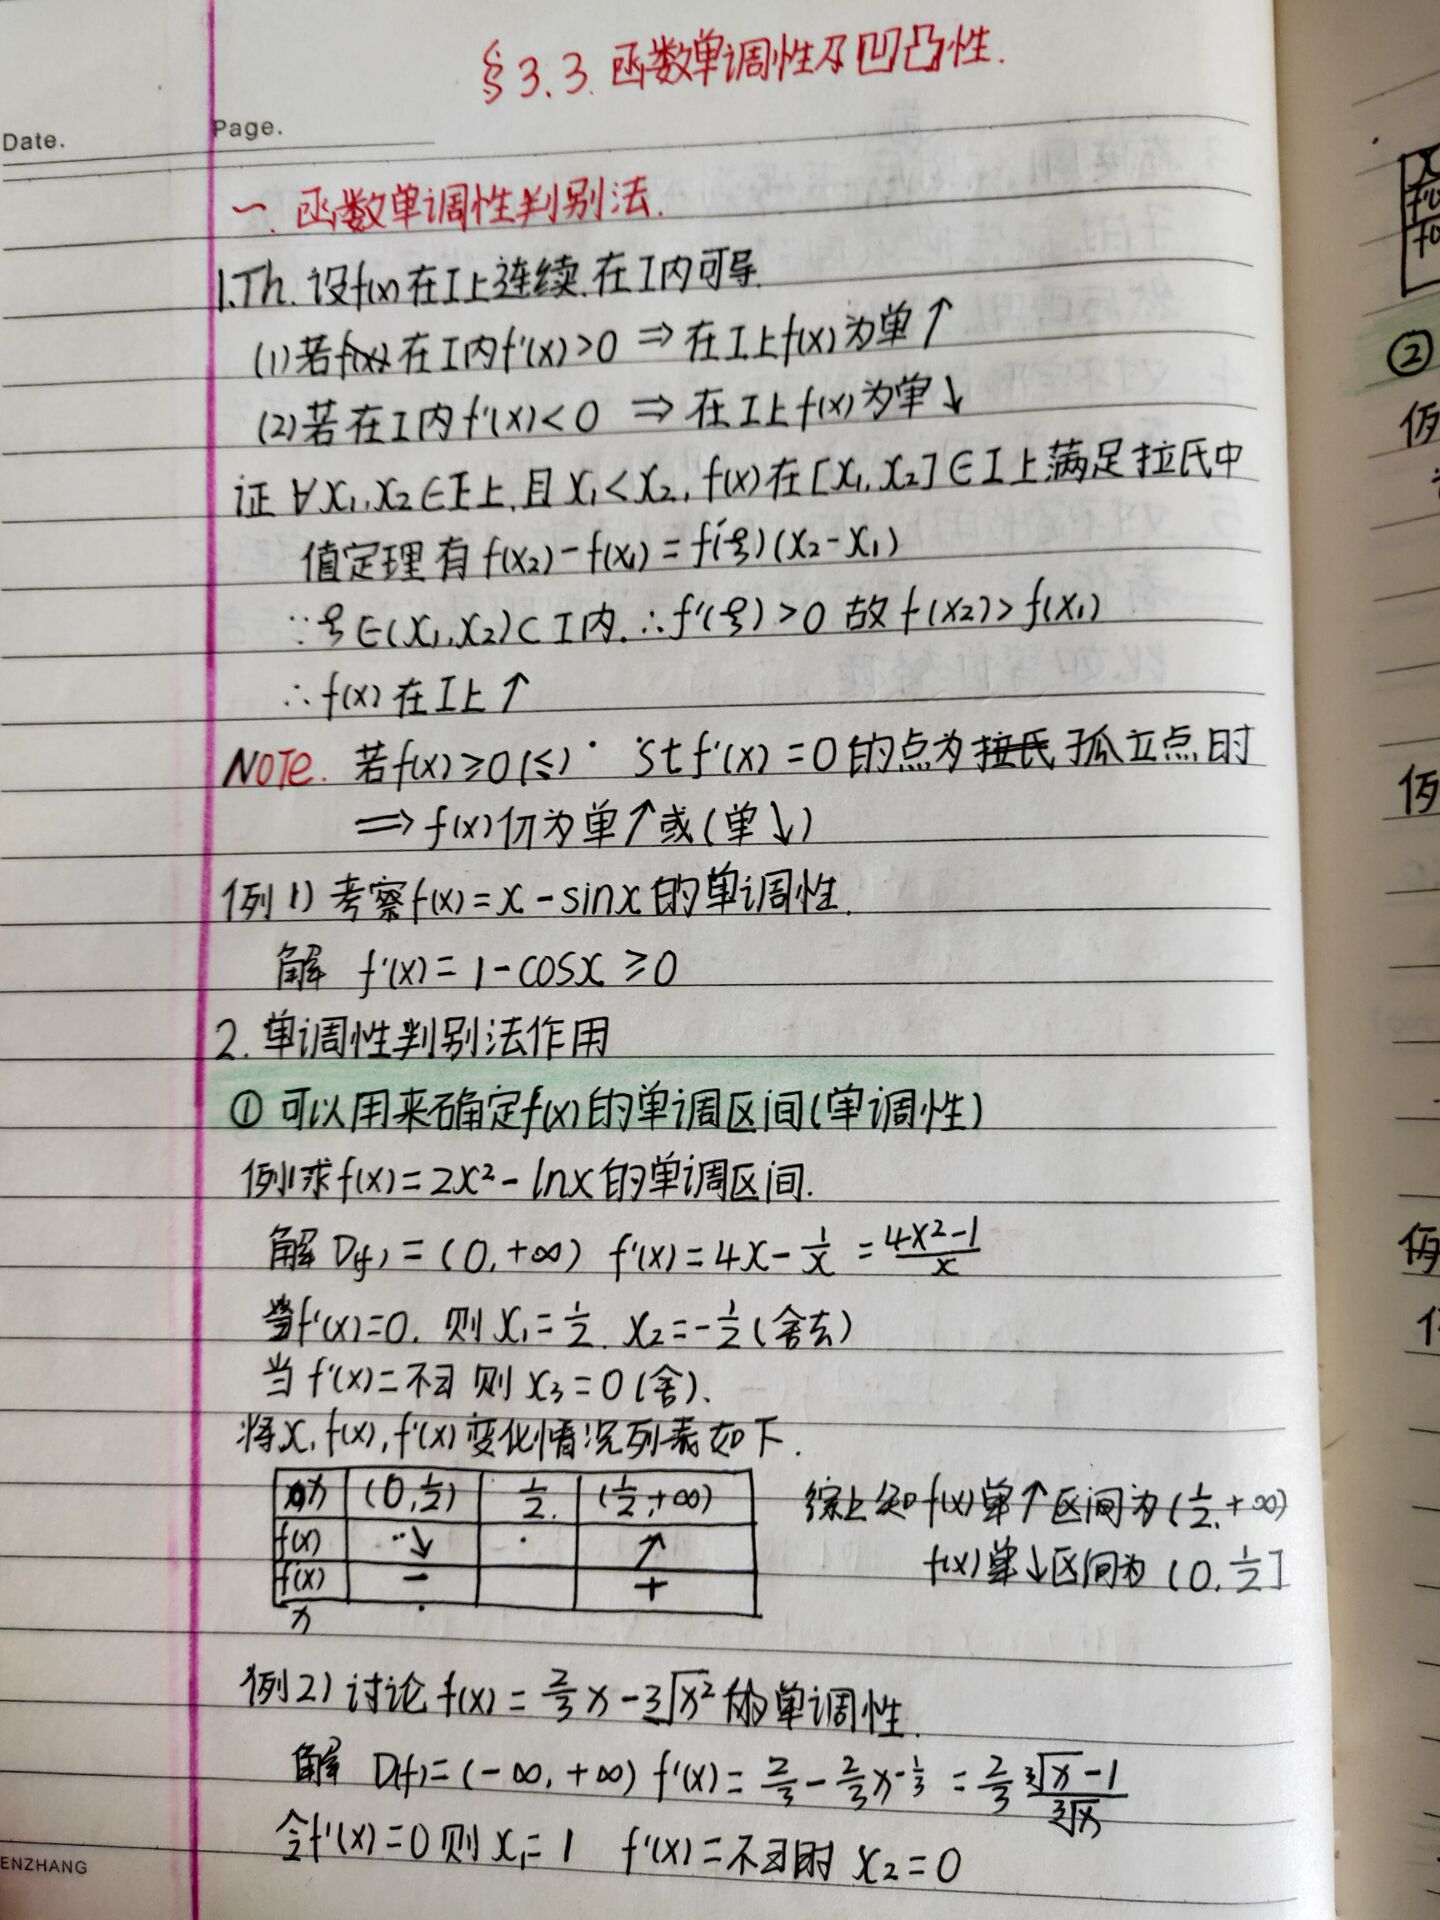 §3.3. 函数单调性及凹凸性.
Date.
Page.
一. 函数单调性判别法.
1.Th. 设f(x)在I上连续.在I内可导.
(1)若在I内f'(x)>0 ⇒在I上f(x)为单↑
(2)若在I内f'(x)<0 ⇒在I上f(x)为单↓
证 ∀x₁,x₂∈I上,且x₁<x₂,f(x)在[x₁,x₂]∈I上满足拉氏中
值定理有f(x₂)-f(x₁)=f'(ξ)(x₂-x₁)
∵ξ∈(x₁,x₂)⊂I内.∴f'(ξ)>0 故f(x₂)>f(x₁)
∴f(x)在I上↑
NOTe. 若f(x)≥0(≤) st f'(x)=0的点为孤立点时
⇒f(x)仍为单↑或(单↓)
例1)考察f(x)=x-sinx的单调性.
解 f'(x)=1-cosx≥0
2.单调性判别法作用
① 可以用来确定f(x)的单调区间(单调性)
例1求f(x)=2x²-lnx的单调区间.
解 D(f)=(0,+∞) f'(x)=4x-1/x=(4x²-1)/x
当f'(x)=0,则x₁=1/2. x₂=-1/2(舍去)
当f'(x)=不∃则x₃=0(舍).
将x,f(x),f'(x)变化情况列表如下.
x (0,1/2) 1/2 (1/2,+∞)
f(x) ↘ ↗
f'(x) - +
x
综上知f(x)单↑区间为(1/2,+∞)
f(x)单↓区间为(0,1/2]
例2)讨论f(x)=2/3x-∛x²的单调性.
解 D(f)=(-∞,+∞) f'(x)=2/3-2/3x^(-1/3)=2/3 (∛x-1)/∛x
令f'(x)=0则x₁=1 f'(x)=不∃时x₂=0
②
ENZHANG